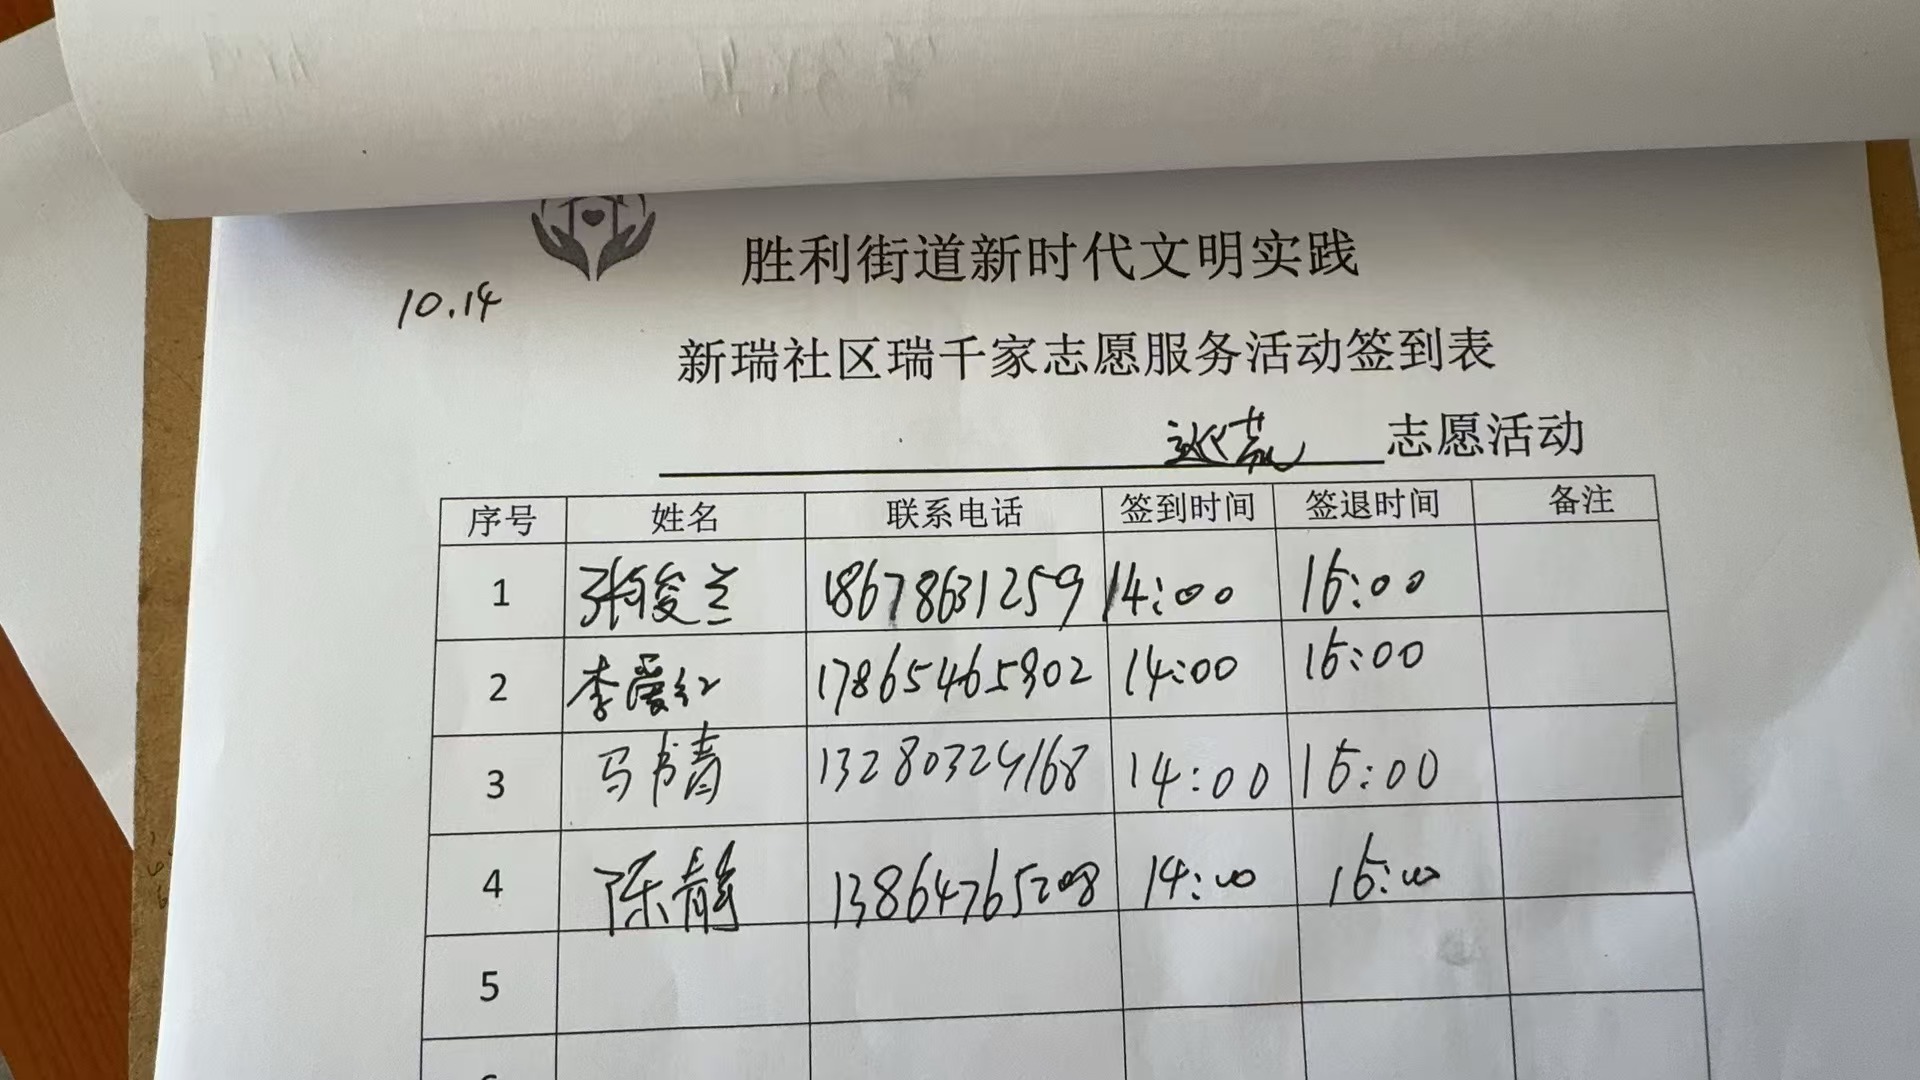 胜利街道新时代文明实践
10.14
新瑞社区瑞千家志愿服务活动签到表
巡荒 志愿活动
序号 姓名 联系电话 签到时间 签退时间 备注
1 张俊兰 18678631259 14:00 15:00
2 李爱红 17865465902 14:00 15:00
3 马书青 13280324168 14:00 15:00
4 陈静 13864765208 14:00 15:00
5